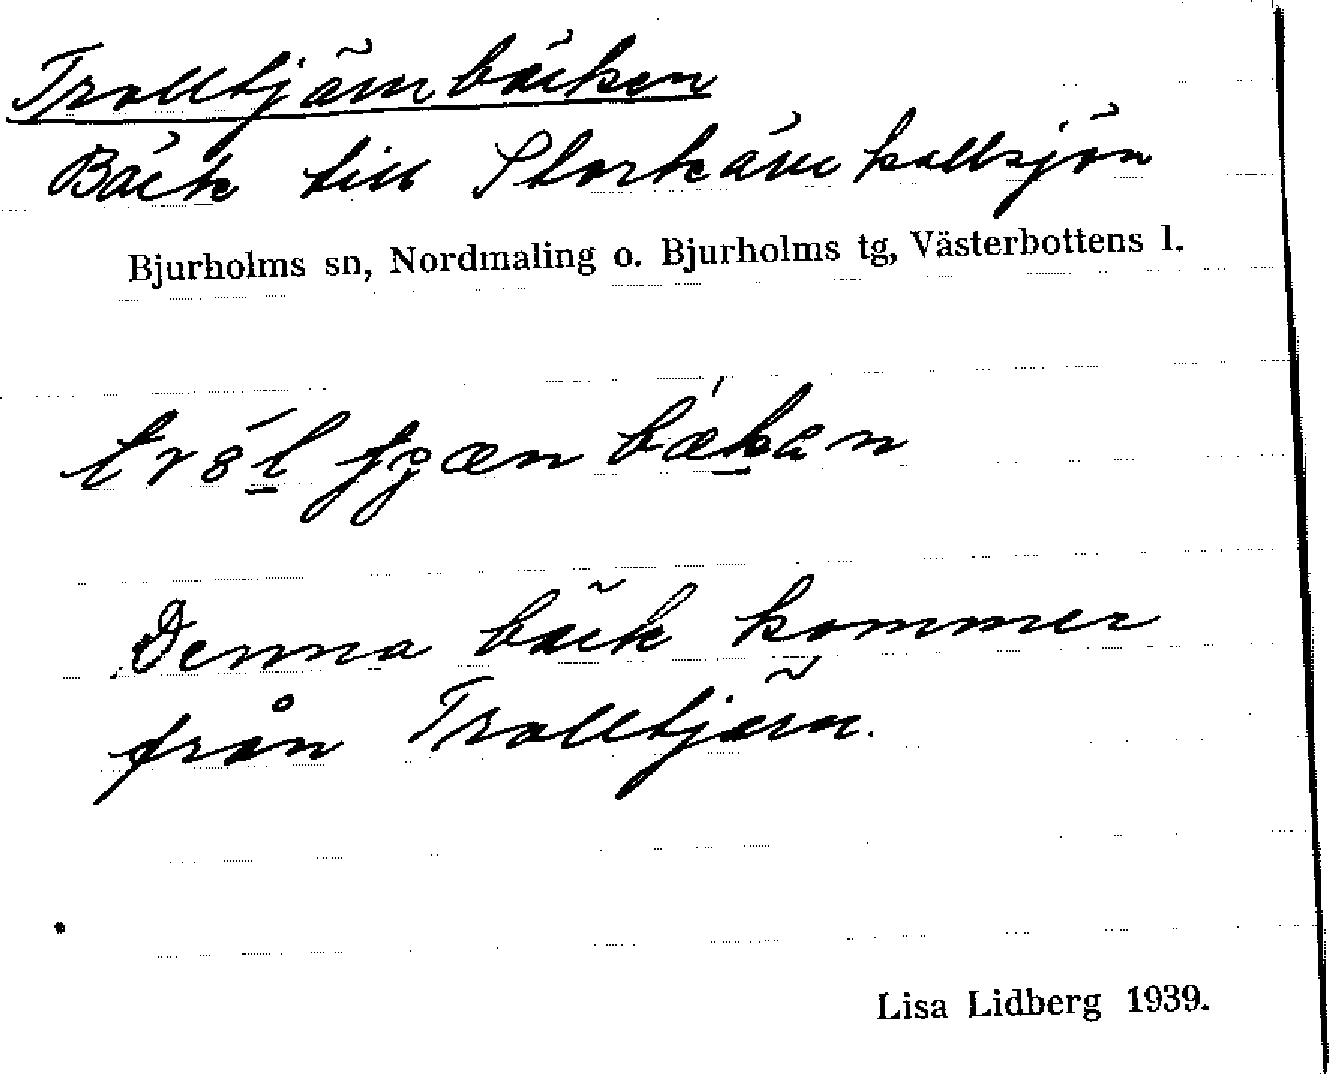 Trolltjärnbäcken
Bäck till Storkälkallsjön
Bjurholms sn, Nordmaling o. Bjurholms tg, Västerbottens l.
bækan
Denna bäck kommer
från Trolltjärn.
Lisa Lidberg 1939.